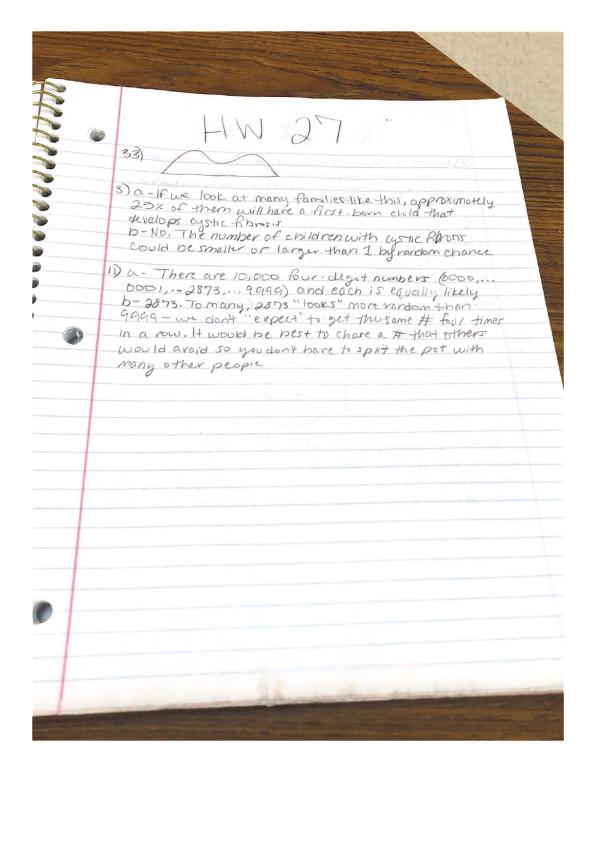 HW 27
33)
3) a - If we look at many families like this, approximately
25% of them will have a first-born child that
develops cystic fibrosis
b - No. The number of children with cystic fibrosis
could be smaller or larger than 1 by random chance
11) a - There are 10,000 four-digit numbers (0000,...
0001,... 2873,... 9999) and each is equally likely
b - 2873. To many, 2873 "looks" more random than
9999 - we don't "expect" to get the same # four times
in a row. It would be best to chose a # that others
would avoid so you don't have to split the pot with
many other people